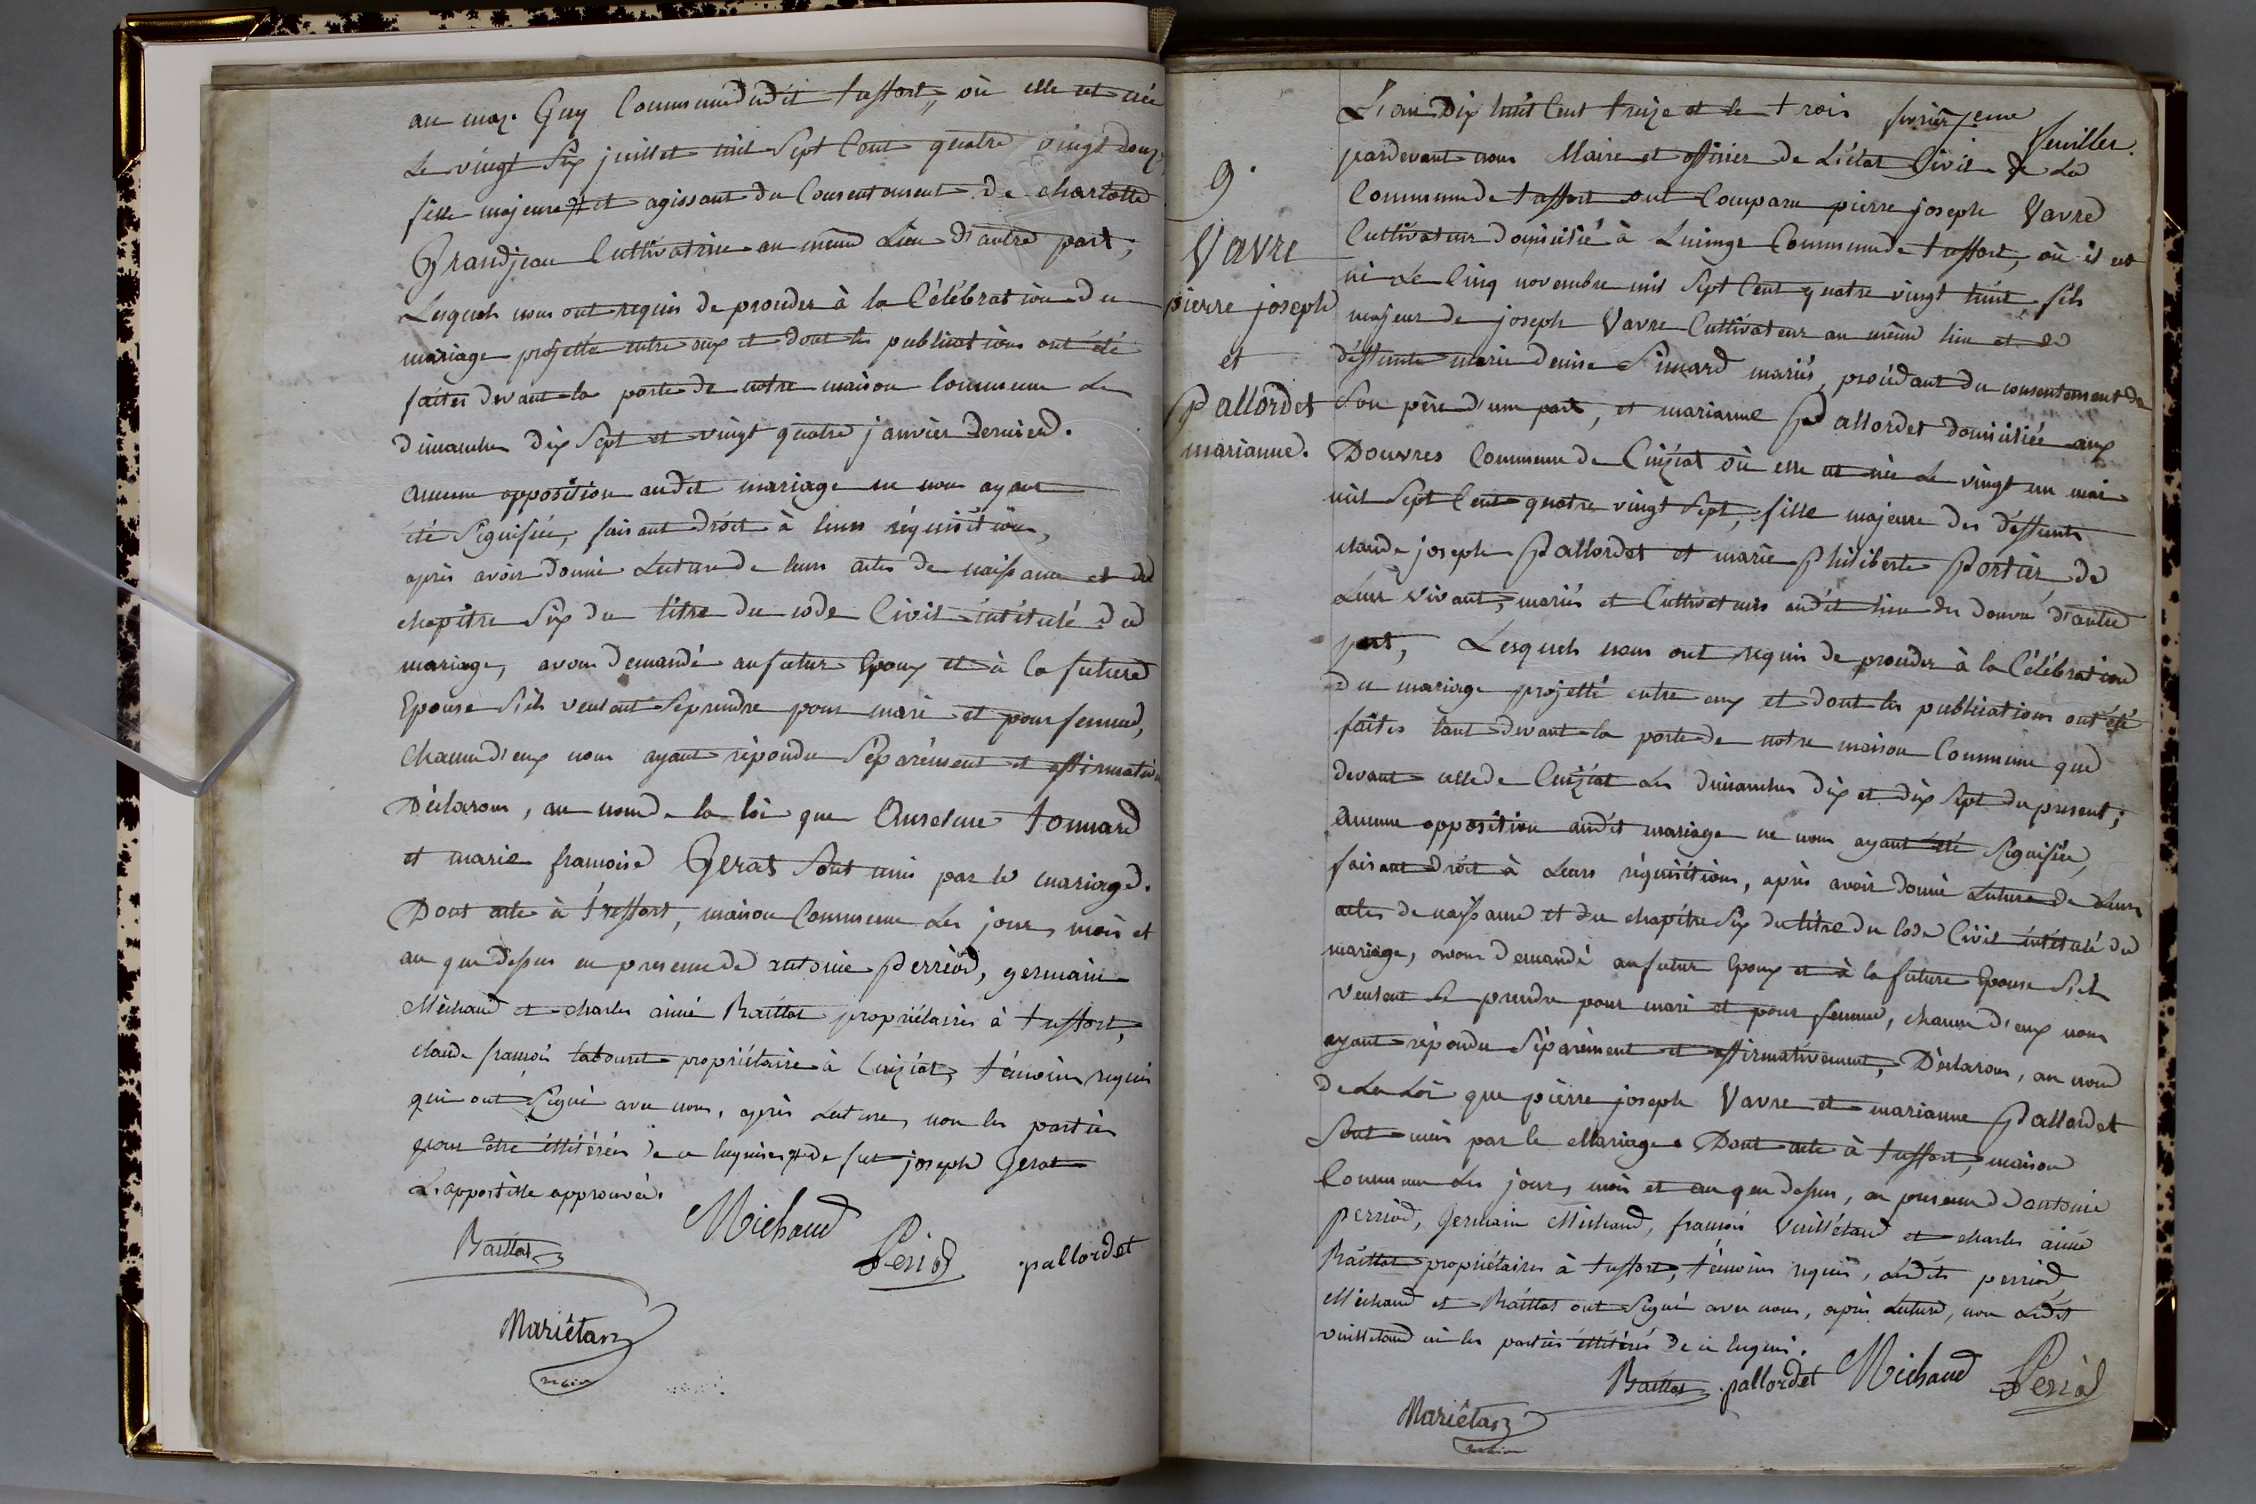 au maz. Guy Commune dudit treffort, où elle est née
Le vingt Six juillet mil Sept Cent quatre vingt douze
fille majeure # et agissant du Consentement de charlotte
Grandjean Cultivatrice au même Lieu d'autre part;
Lesquels nous ont requis de proceder à la Célébration du
mariage projetté entre eux et dont les publications ont été
faites devant la porte de notre maison Commune Les
dimanches dix Sept et vingt quatre janvier Dernier.
Aucune opposition audit mariage ne nous ayant
été Signifiée, faisant droit à leurs réquisitions,
après avoir donné Lecture de leurs actes de naissance et du
chapitre Six du titre du code Civil intitulé du
mariage, avons demandé au futur Epoux et à la future
Epouse S'ils veulent Se prendre pour mari et pour femme,
Chacun d'eux nous ayant répondu Séparément et affirmativ.
Déclarons, au nom de la loi que Anselme tonnard
et marie françoise Gerat Sont unis par le mariage.
Dont acte à treffort, maison Commune Les jour, mois et
an que dessus en presence de antoine perriod, germain
Michaud et charles aimé Raillat propriétaires à treffort,
claude françois tabouret propriétaire à Cuiziat, témoins requis
qui ont Signé avec nous, après Lecture, non les parties
pour être illitérées de ce enquises # de feu joseph Gerat
L'appostille approuvée.
Raillat Michaud Period pallordet
Mariétan
maire
feuillet
9.
Vavre
pierre joseph
et
Pallordet
marianne.
L'an Dix huit Cent treize et le trois février
pardevant nous Maire et officier de L'état Civil de La
Commune de treffort ont Comparu pierre joseph Vavre
Cultivateur domicilié à Commune de treffort, où il est
né Le Cinq novembre mil Sept Cent quatre vingt huit fils
majeur de joseph Vavre Cultivateur au même lieu et de
déffunte marie denise Simard mariés, procédant du consentement de
Son père d'une part, et marianne Pallordet domiciliée aux
Douvres Commune de Cuiziat où elle est née Le vingt un mai
mil Sept Cent quatre vingt Sept, fille majeure des déffunts
claude joseph Pallordet et marie Philiberte Portier de
Leur vivant, mariés et Cultivateurs audit lieu des douvres d'autre
part, Lesquels nous ont requis de proceder à la Célébration
du mariage projetté entre eux et dont les publications ont été
faites tant devant la porte de notre maison Commune que
devant celle de Cuiziat Les dimanches dix et dix Sept du present;
Aucune opposition audit mariage ne nous ayant été Signifiée,
faisant droit à Leurs réquisitions, après avoir donné Lecture de Leurs
actes de naissance et du chapitre Six du titre du Code Civil intitulé du
mariage, avons demandé au futur Epoux et à la future Epouse S'ils
veulent Se prendre pour mari et pour femme, chacun d'eux nous
ayant répondu Séparément et affirmativement, Déclarons, au nom
de La Loi que pierre joseph Vavre et marianne Pallordet
Sont unis par le Mariage. Dont acte à treffort, maison
Commune Les jour, mois et an que dessus, en presence d'antoine
perriod, Germain Michaud, françois Vuilletaud et charles aimé
Raillat propriétaires à treffort, témoins requis, Lesdits perriod,
Michaud et Raillat ont Signé avec nous, après Lecture, non Ledit
vuilletaud ni les parties illitérés de ce Enquis.
Raillat pallordet Michaud Period
Mariétan
maire